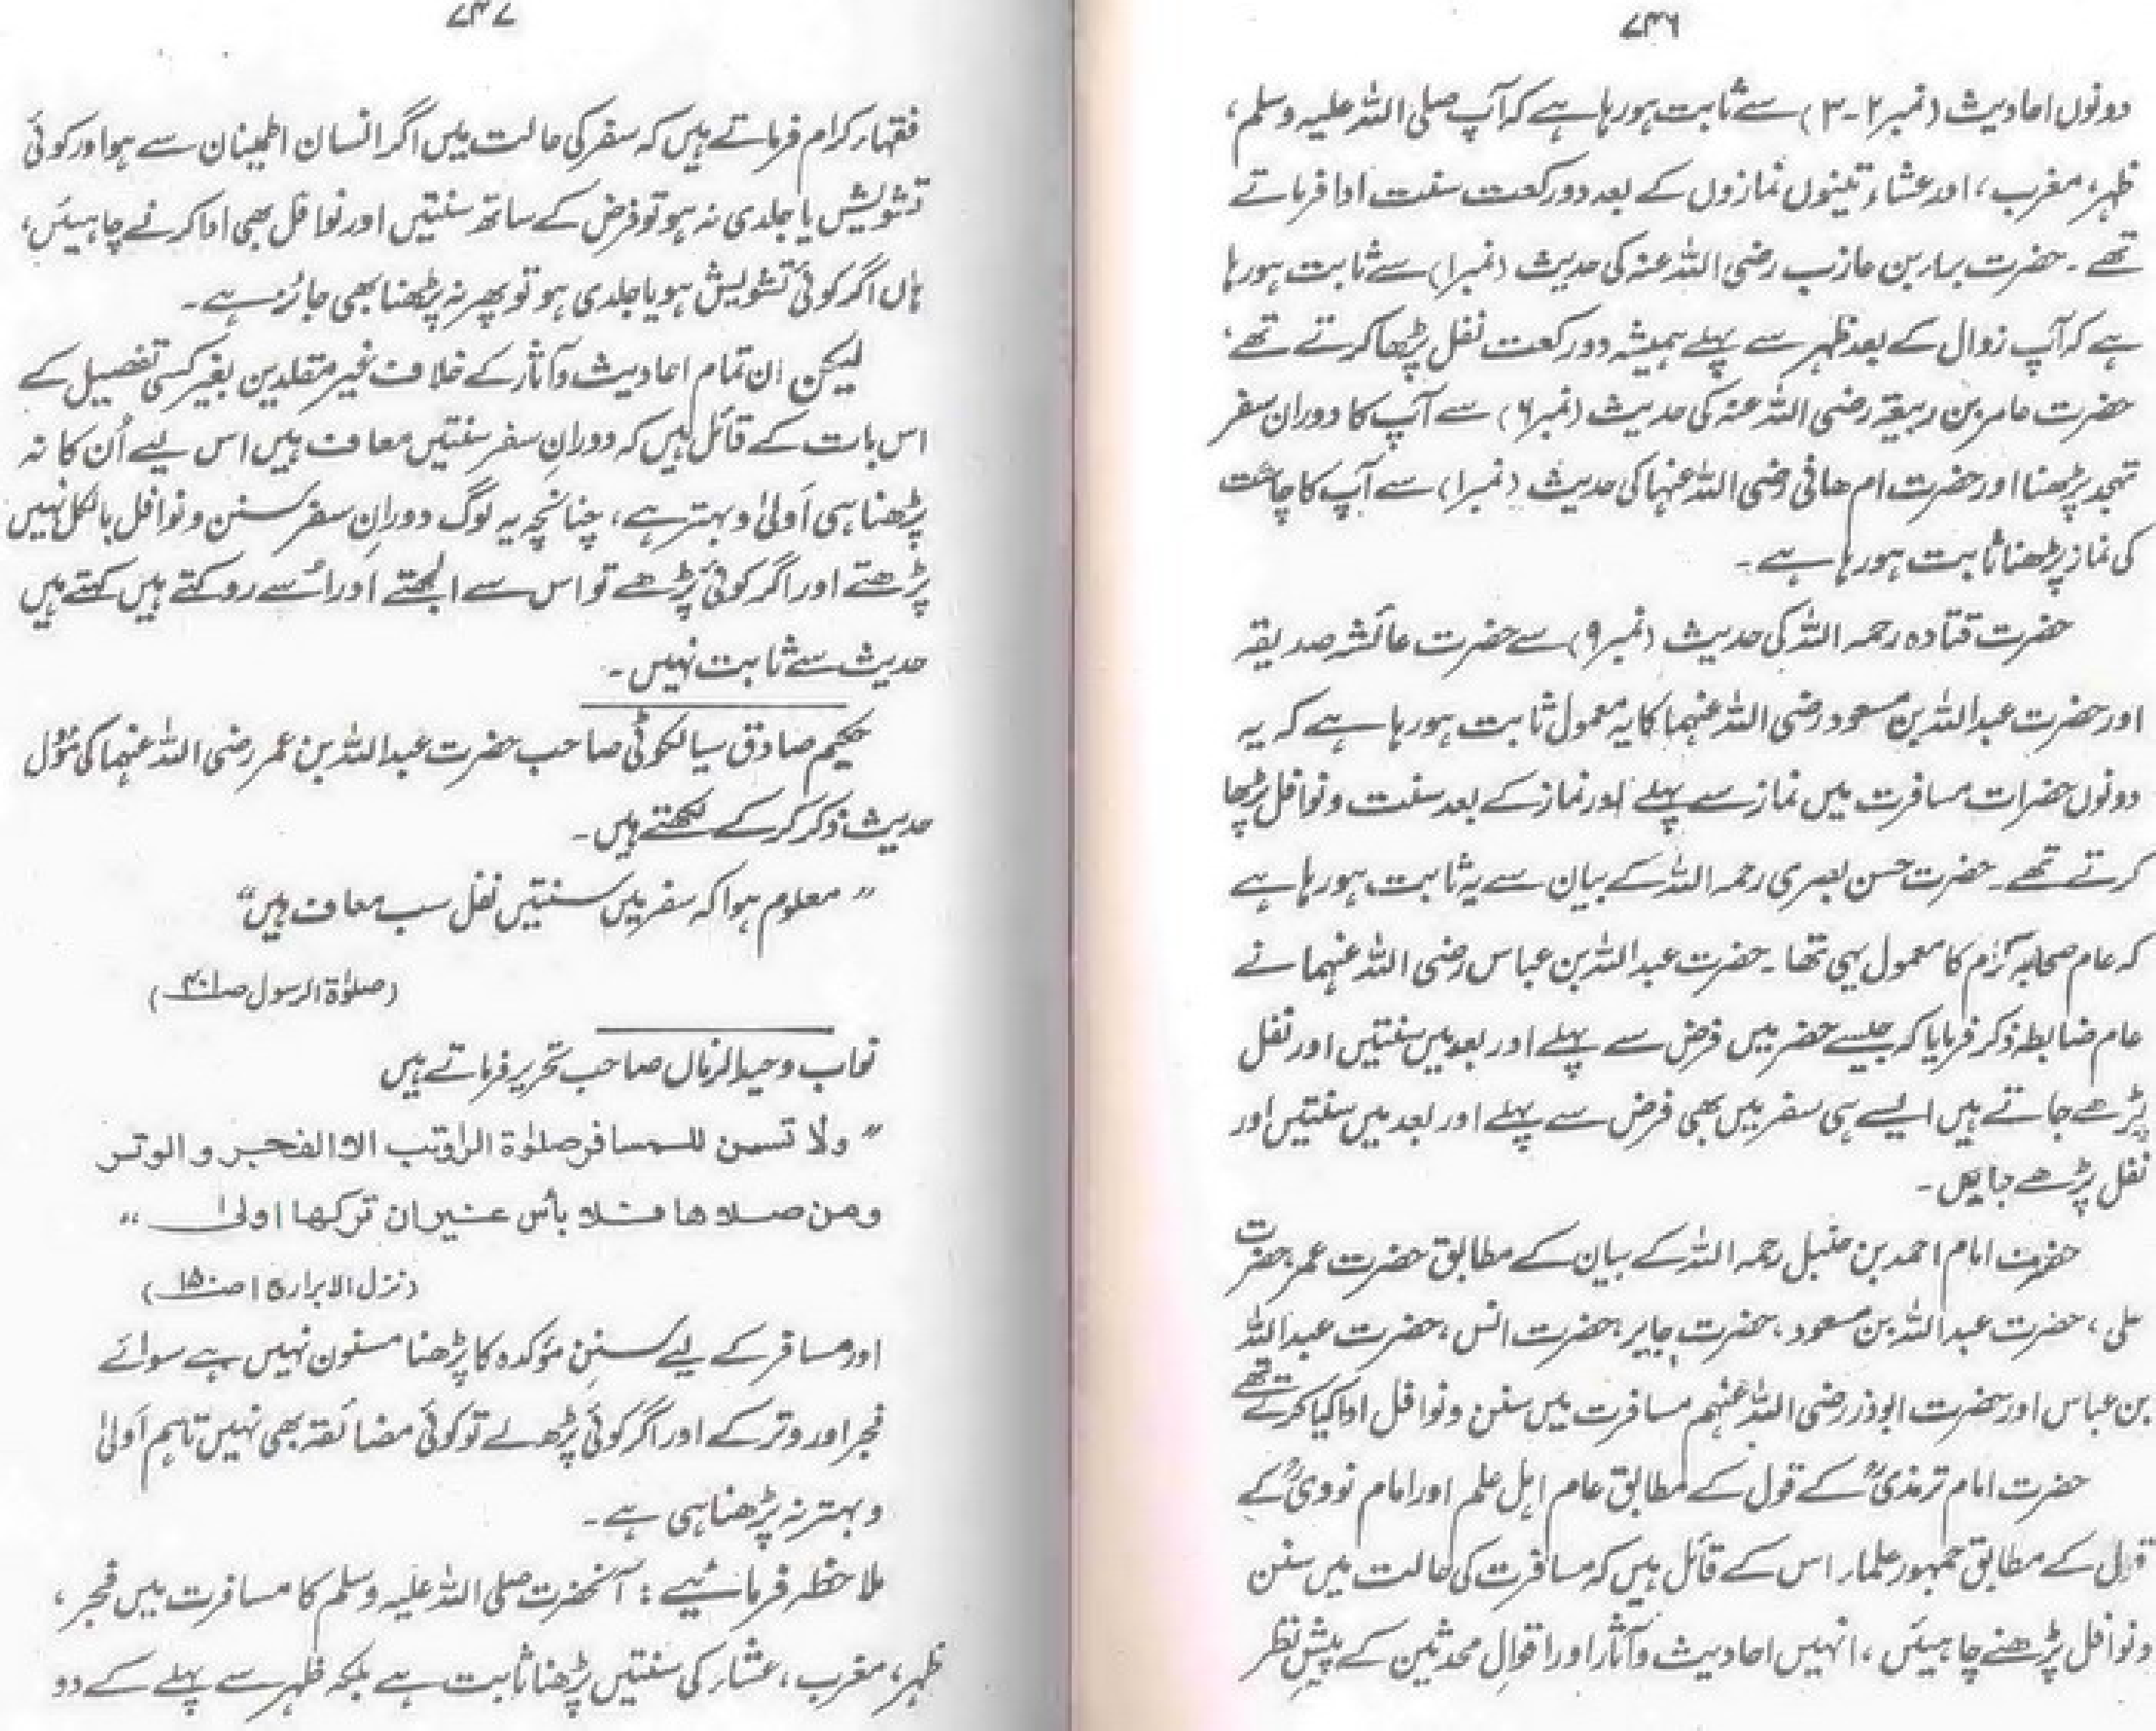 ۷۴۶
دونوں احادیث (نمبر ۲-۳) سے ثابت ہورہا ہے کہ آپ صلی اللہ علیہ وسلم،
ظہر، مغرب، اور عشاء تینوں نمازوں کے بعد دو رکعت سنت ادا فرماتے
تھے ۔ حضرت براء بن عازب رضی اللہ عنہ کی حدیث (نمبر ۱) سے ثابت ہورہا
ہے کہ آپ زوال کے بعد ظہر سے پہلے ہمیشہ دو رکعت نفل پڑھا کرتے تھے،
حضرت عامر بن ربیعۃ رضی اللہ عنہ کی حدیث (نمبر ۶) سے آپ کا دوران سفر
تہجد پڑھنا اور حضرت ام ھانی رضی اللہ عنہا کی حدیث (نمبر ۱) سے آپ کا چاشت
کی نماز پڑھنا ثابت ہورہا ہے ۔
حضرت قتادہ رحمہ اللہ کی حدیث (نمبر ۹) سے حضرت عائشہ صدیقہ
اور حضرت عبداللہ بن مسعود رضی اللہ عنہما کا یہ معمول ثابت ہورہا ہے کہ یہ
دونوں حضرات مسافرت میں نماز سے پہلے اور نماز کے بعد سنت و نوافل پڑھا
کرتے تھے ۔ حضرت حسن بصری رحمہ اللہ کے بیان سے یہ ثابت ہورہا ہے
کہ عام صحابہ کرام کا معمول یہی تھا ۔ حضرت عبداللہ بن عباس رضی اللہ عنہما نے
عام ضابطہ ذکر فرمایا کہ جیسے حضر میں فرض سے پہلے اور بعد میں سنتیں اور نفل
پڑھے جاتے ہیں ایسے ہی سفر میں بھی فرض سے پہلے اور بعد میں سنتیں اور
نفل پڑھے جایں ۔
حضرت امام احمد بن حنبل رحمہ اللہ کے بیان کے مطابق حضرت عمر، حضرت
علی، حضرت عبداللہ بن مسعود، حضرت جابر، حضرت انس، حضرت عبداللہ
بن عباس اور حضرت ابوذر رضی اللہ عنہم مسافرت میں سنن و نوافل ادا کیا کرتے تھے
حضرت امام ترمذیؒ کے قول کے مطابق عام اہل علم اور امام نوویؒ کے
قول کے مطابق جمہور علماء اس کے قائل ہیں کہ مسافرت کی حالت میں سنن
و نوافل پڑھنے چاہییں، انہیں احادیث و آثار اور اقوال محدثین کے پیشِ نظر
۷۴۷
فقہاء کرام فرماتے ہیں کہ سفر کی حالت میں اگر انسان اطمینان سے ہو اور کوئی
تشویش یا جلدی نہ ہو تو فرض کے ساتھ سنتیں اور نوافل بھی ادا کرنے چاہییں،
ہاں اگر کوئی تشویش ہو یا جلدی ہو تو پھر نہ پڑھنا بھی جائز ہے ۔
لیکن ان تمام احادیث و آثار کے خلاف غیر مقلدین بغیر کسی تفصیل کے
اس بات کے قائل ہیں کہ دورانِ سفر سنتیں معاف ہیں اس لیے اُن کا نہ
پڑھنا ہی اَولیٰ و بہتر ہے، چنانچہ یہ لوگ دورانِ سفر سنن و نوافل بالکل نہیں
پڑھتے اور اگر کوئی پڑھے تو اس سے الجھتے اور اُسے روکتے ہیں کہتے ہیں
حدیث سے ثابت نہیں ۔
حکیم صادق سیالکوٹی صاحب حضرت عبداللہ بن عمر رضی اللہ عنہما کی مؤول
حدیث ذکر کر کے لکھتے ہیں ۔
” معلوم ہوا کہ سفر میں سنتیں نفل سب معاف ہیں“
(صلوٰۃ الرسول صـ ۴۰۱)
نواب وحید الزماں صاحب تحریر فرماتے ہیں
” ولا تسن للمسافر صلوٰة الرواتب الا الفجر و الوتر
ومن صلاها فلا بأس غیر ان ترکها اولیٰ “
(نزل الابرار ج ۱ صـ ۱۵۰)
اور مسافر کے لیے سننِ مؤکدہ کا پڑھنا مسنون نہیں ہے سوائے
فجر اور وتر کے اور اگر کوئی پڑھ لے تو کوئی مضائقہ بھی نہیں تاہم اَولیٰ
و بہتر نہ پڑھنا ہی ہے ۔
ملاحظہ فرمائیے : آنحضرت صلی اللہ علیہ وسلم کا مسافرت میں فجر،
ظہر، مغرب، عشاء کی سنتیں پڑھنا ثابت ہے بلکہ ظہر سے پہلے کے دو